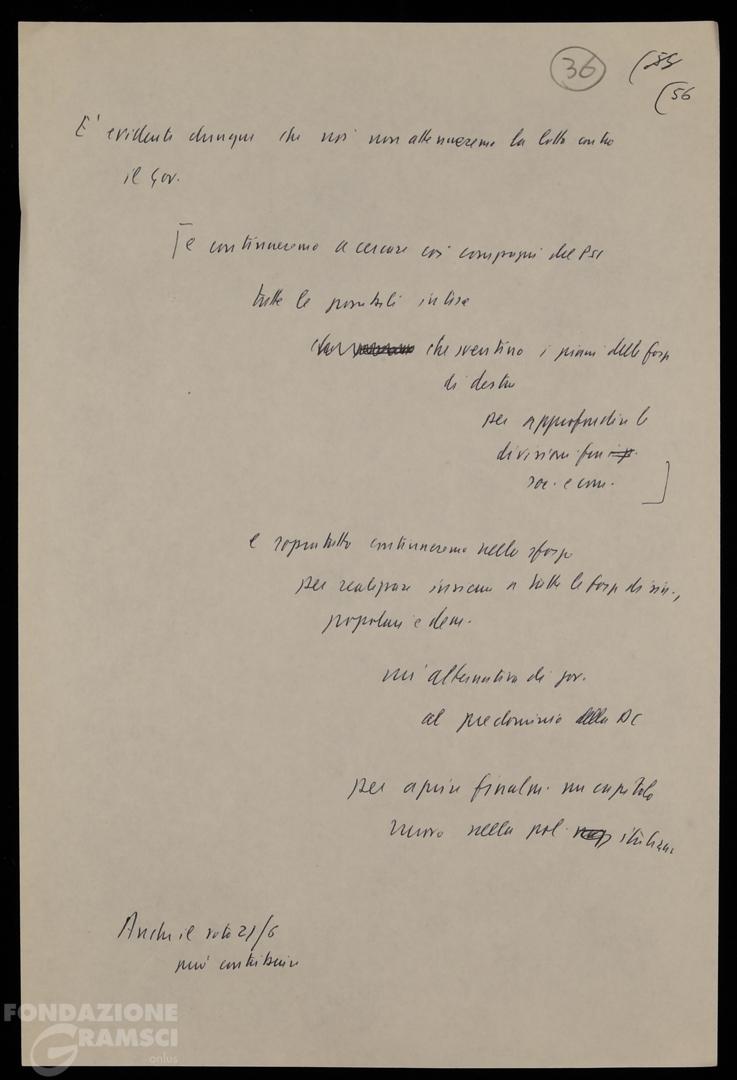 36
(55
(56
E' evidente dunque che noi non attenueremo la lotta contro
il gov.
[e continueremo a cercare coi compagni del Psi
tutte le possibili intese
che sventino i piani delle forze
di destra
per approfondire le
divisioni fra i
soc. e com. ]
e soprattutto continueremo nello sforzo
per realizzare insieme a tutte le forze di sin.,
popolari e dem.
un'alternativa di gov.
al predominio della DC
per aprire finalm. un capitolo
nuovo nella pol. italiana
Anche il voto 21/6
può contribuire
FONDAZIONE
GRAMSCI
onlus